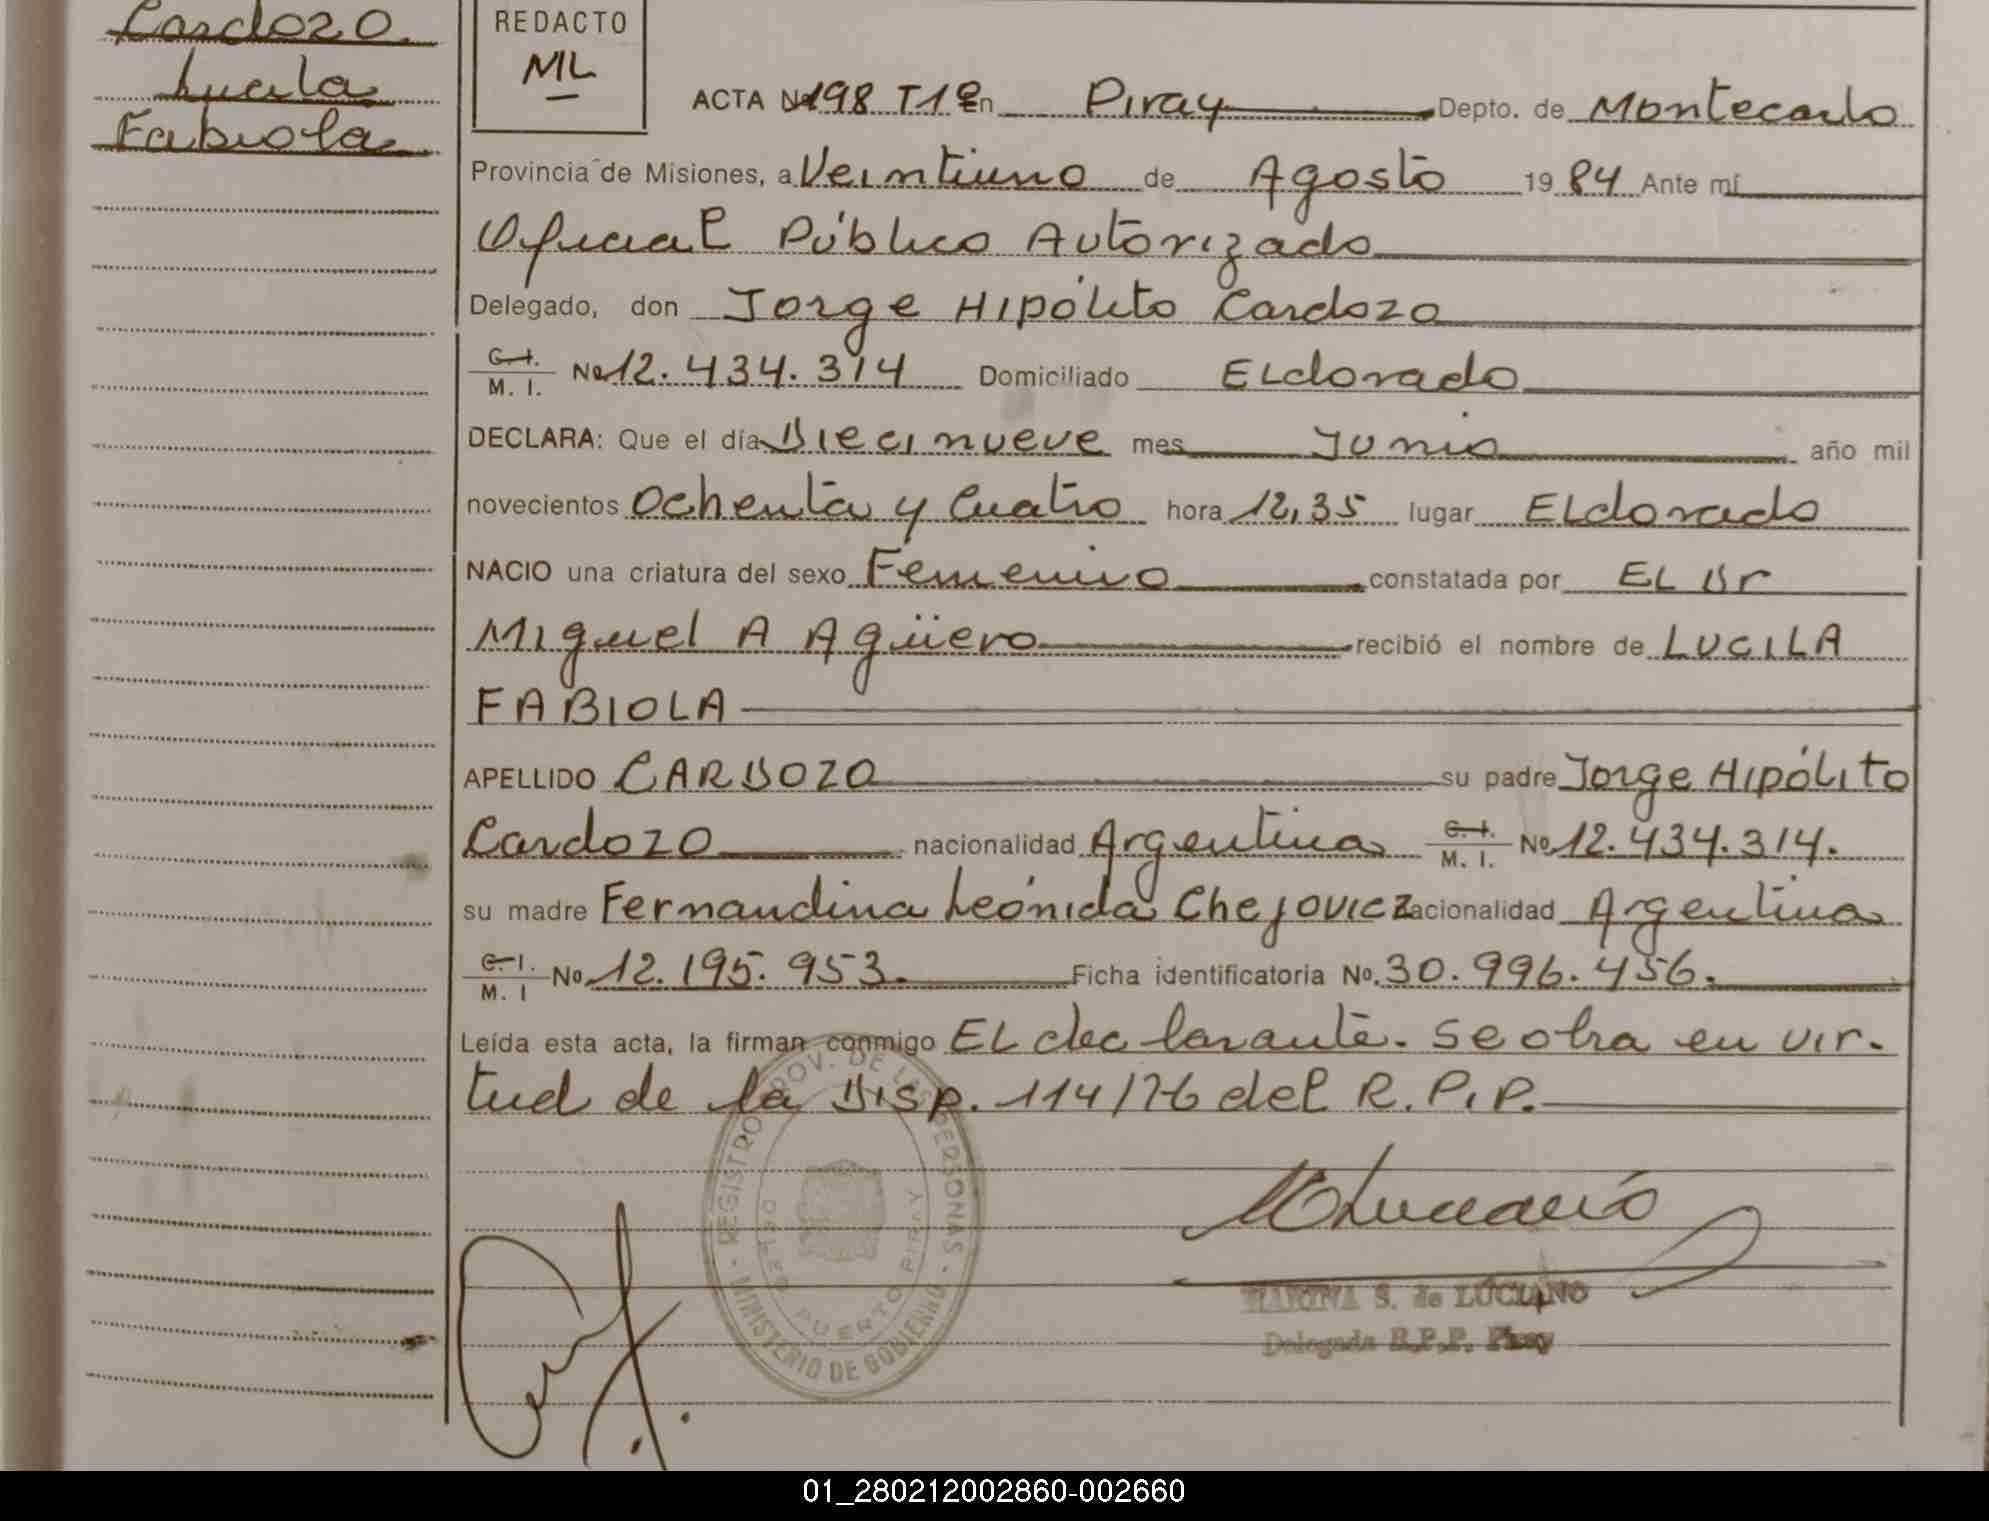 Cardozo
Lucila
Fabiola
REDACTO
ML
ACTA Nº 198 T1º En Piray Depto. de Montecarlo
Provincia de Misiones, a Veintiuno de Agosto 1984 Ante mí
Oficial Público Autorizado
Delegado, don Jorge Hipólito Cardozo
C. I.
M. I. No 12.434.314 Domiciliado ELdorado
DECLARA: Que el día Diecinueve mes Junio año mil
novecientos Ochenta y Cuatro hora 12,35 lugar ELdorado
NACIO una criatura del sexo Femenino constatada por EL Dr
Miguel A Agüero recibió el nombre de LUCILA
FABIOLA
APELLIDO CARDOZO su padre Jorge Hipólito
Cardozo nacionalidad Argentina C. I. M. I. No 12.434.314.
su madre Fernandina Leónida Chejovicz nacionalidad Argentina
C. I. M. I No 12.195.953. Ficha identificatoria No. 30.996.456.
Leída esta acta, la firman conmigo EL declarante. Se otra en vir-
tud de la Disp. 114/76 del R.P.P.
REGISTRO PROV. DE LAS PERSONAS
DELEG PUERTO PIRAY
MINISTERIO DE GOBIERNO
MLuciano
MARINA S. de LUCIANO
Delegada R.P.P. Piray
01_280212002860-002660